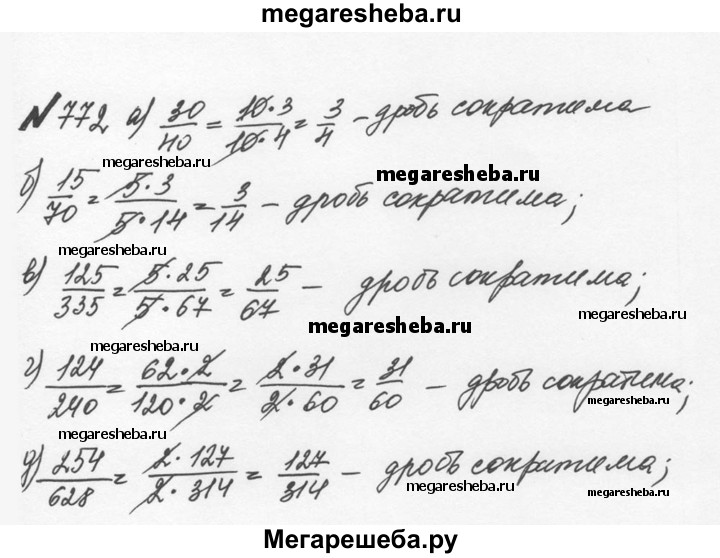 megaresheba.ru
№772 а) 30/40 = 10·3/10·4 = 3/4 – дробь сократима
megaresheba.ru
megaresheba.ru
б) 15/70 = 5·3/5·14 = 3/14 – дробь сократима;
megaresheba.ru
в) 125/335 = 5·25/5·67 = 25/67 – дробь сократима;
megaresheba.ru
megaresheba.ru
г) 124/240 = 62·2/120·2 = 2·31/2·60 = 31/60 – дробь сократима;
megaresheba.ru
megaresheba.ru
д) 254/628 = 2·127/2·314 = 127/314 – дробь сократима;
megaresheba.ru
megaresheba.ru
Мегарешеба.ру